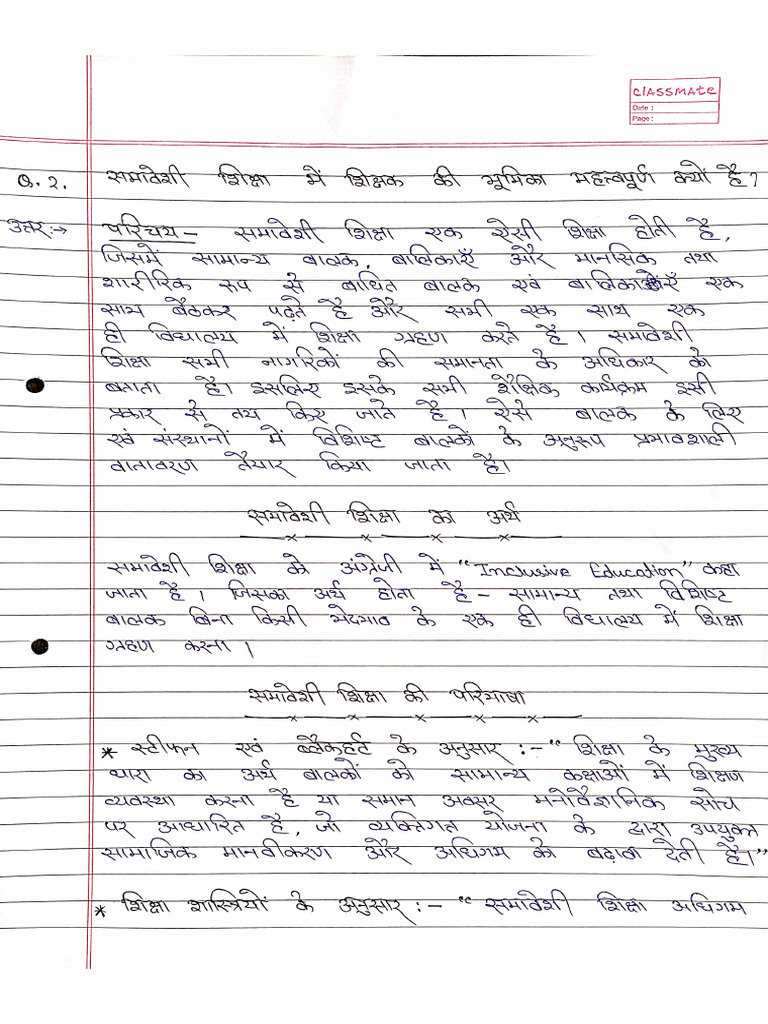 classmate
Date :
Page :
Q.2. समावेशी शिक्षा में शिक्षक की भूमिका महत्वपूर्ण क्यों है?
उत्तर:→ परिचय – समावेशी शिक्षा एक ऐसी शिक्षा होती है,
जिसमें सामान्य बालक, बालिकाएँ और मानसिक तथा
शारीरिक रूप से बाधित बालक एवं एक
साथ बैठकर पढ़ते है और सभी एक साथ एक
ही विद्यालय में शिक्षा ग्रहण करते है। समावेशी
शिक्षा सभी नागरिकों की समानता के अधिकार को
बताता है। इसलिए इसके सभी शैक्षिक कार्यक्रम इसी
प्रकार से तय किए जाते है। ऐसे बालक के लिए
एवं संस्थानों में विशिष्ट बालकों के अनुरूप प्रभावशाली
वातावरण तैयार किया जाता है।
समावेशी शिक्षा का अर्थ
समावेशी शिक्षा को अंग्रेजी में "Inclusive Education" कहा
जाता है। जिसका अर्थ होता है – सामान्य तथा विशिष्ट
बालक बिना किसी भेदभाव के एक ही विद्यालय में शिक्षा
ग्रहण करना।
समावेशी शिक्षा की परिभाषा
* स्टीफन एवं ब्लैकहर्ट के अनुसार :– "शिक्षा के मुख्य
धारा का अर्थ बालकों को सामान्य कक्षाओं में शिक्षण
व्यवस्था करना है या समान अवसर मनोवैज्ञानिक सोच
पर आधारित है, जो व्यक्तिगत योजना के द्वारा उपयुक्त
सामाजिक मानवीकरण और अधिगम को बढ़ावा देती है।"
* शिक्षा शास्त्रियों के अनुसार :– "समावेशी शिक्षा अधिगम